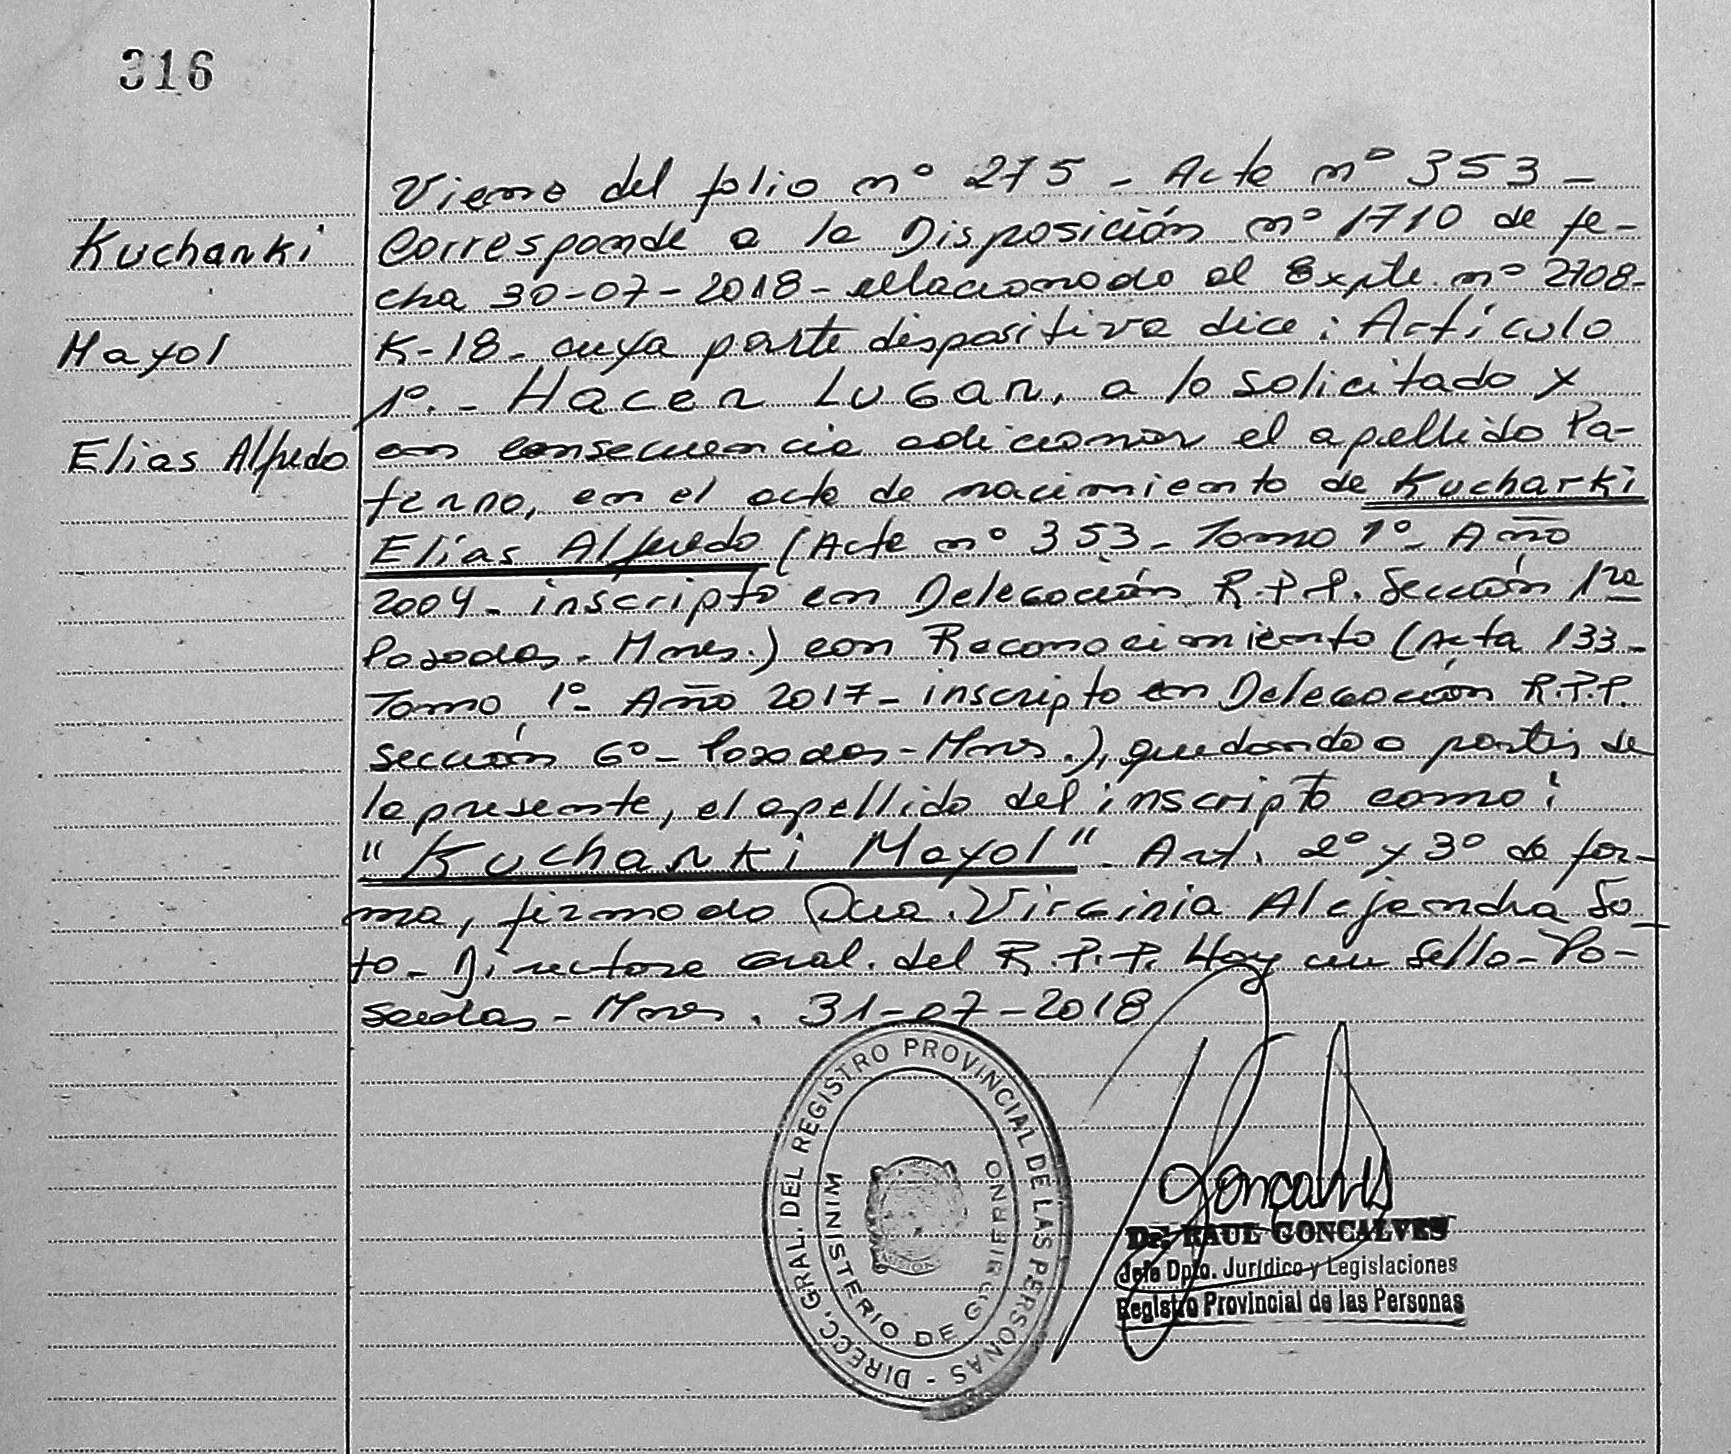 316
Kucharki
Mayol
Elias Alfredo
Viene del folio nº 275 - Acta nº 353 -
Corresponde a la Disposición nº 1710 de fe-
cha 30-07-2018 - relacionado al Expte. nº 2708-
K-18 - cuya parte dispositiva dice: Artículo
1º.- Hacer Lugar, a lo solicitado y
en consecuencia adicionar el apellido Pa-
terno, en el acta de nacimiento de Kucharki
Elías Alfredo (Acta nº 353 - Tomo 1º - Año
2004 - inscripto en Delegación R.P.P. Sección 1ra
Posadas - Mnes.) con Reconocimiento (Acta 133 -
Tomo 1º - Año 2017 - inscripto en Delegación R.P.P.
sección 6º - Posadas - Mnes.), quedando a partir de
la presente, el apellido del inscripto como:
"Kucharki Mayol" - Art. 2º y 3º de for-
ma, firmado Dra. Virginia Alejandra So-
to - Directora Gral. del R.P.P. Hay un sello - Po-
sadas - Mnes. 31-07-2018
DIRECC. GRAL. DEL REGISTRO PROVINCIAL DE LAS PERSONAS -
MINISTERIO DE GOBIERNO
MISIONES
Gonçalves
Dr. RAUL GONCALVES
Jefe Dpto. Jurídico y Legislaciones
Registro Provincial de las Personas